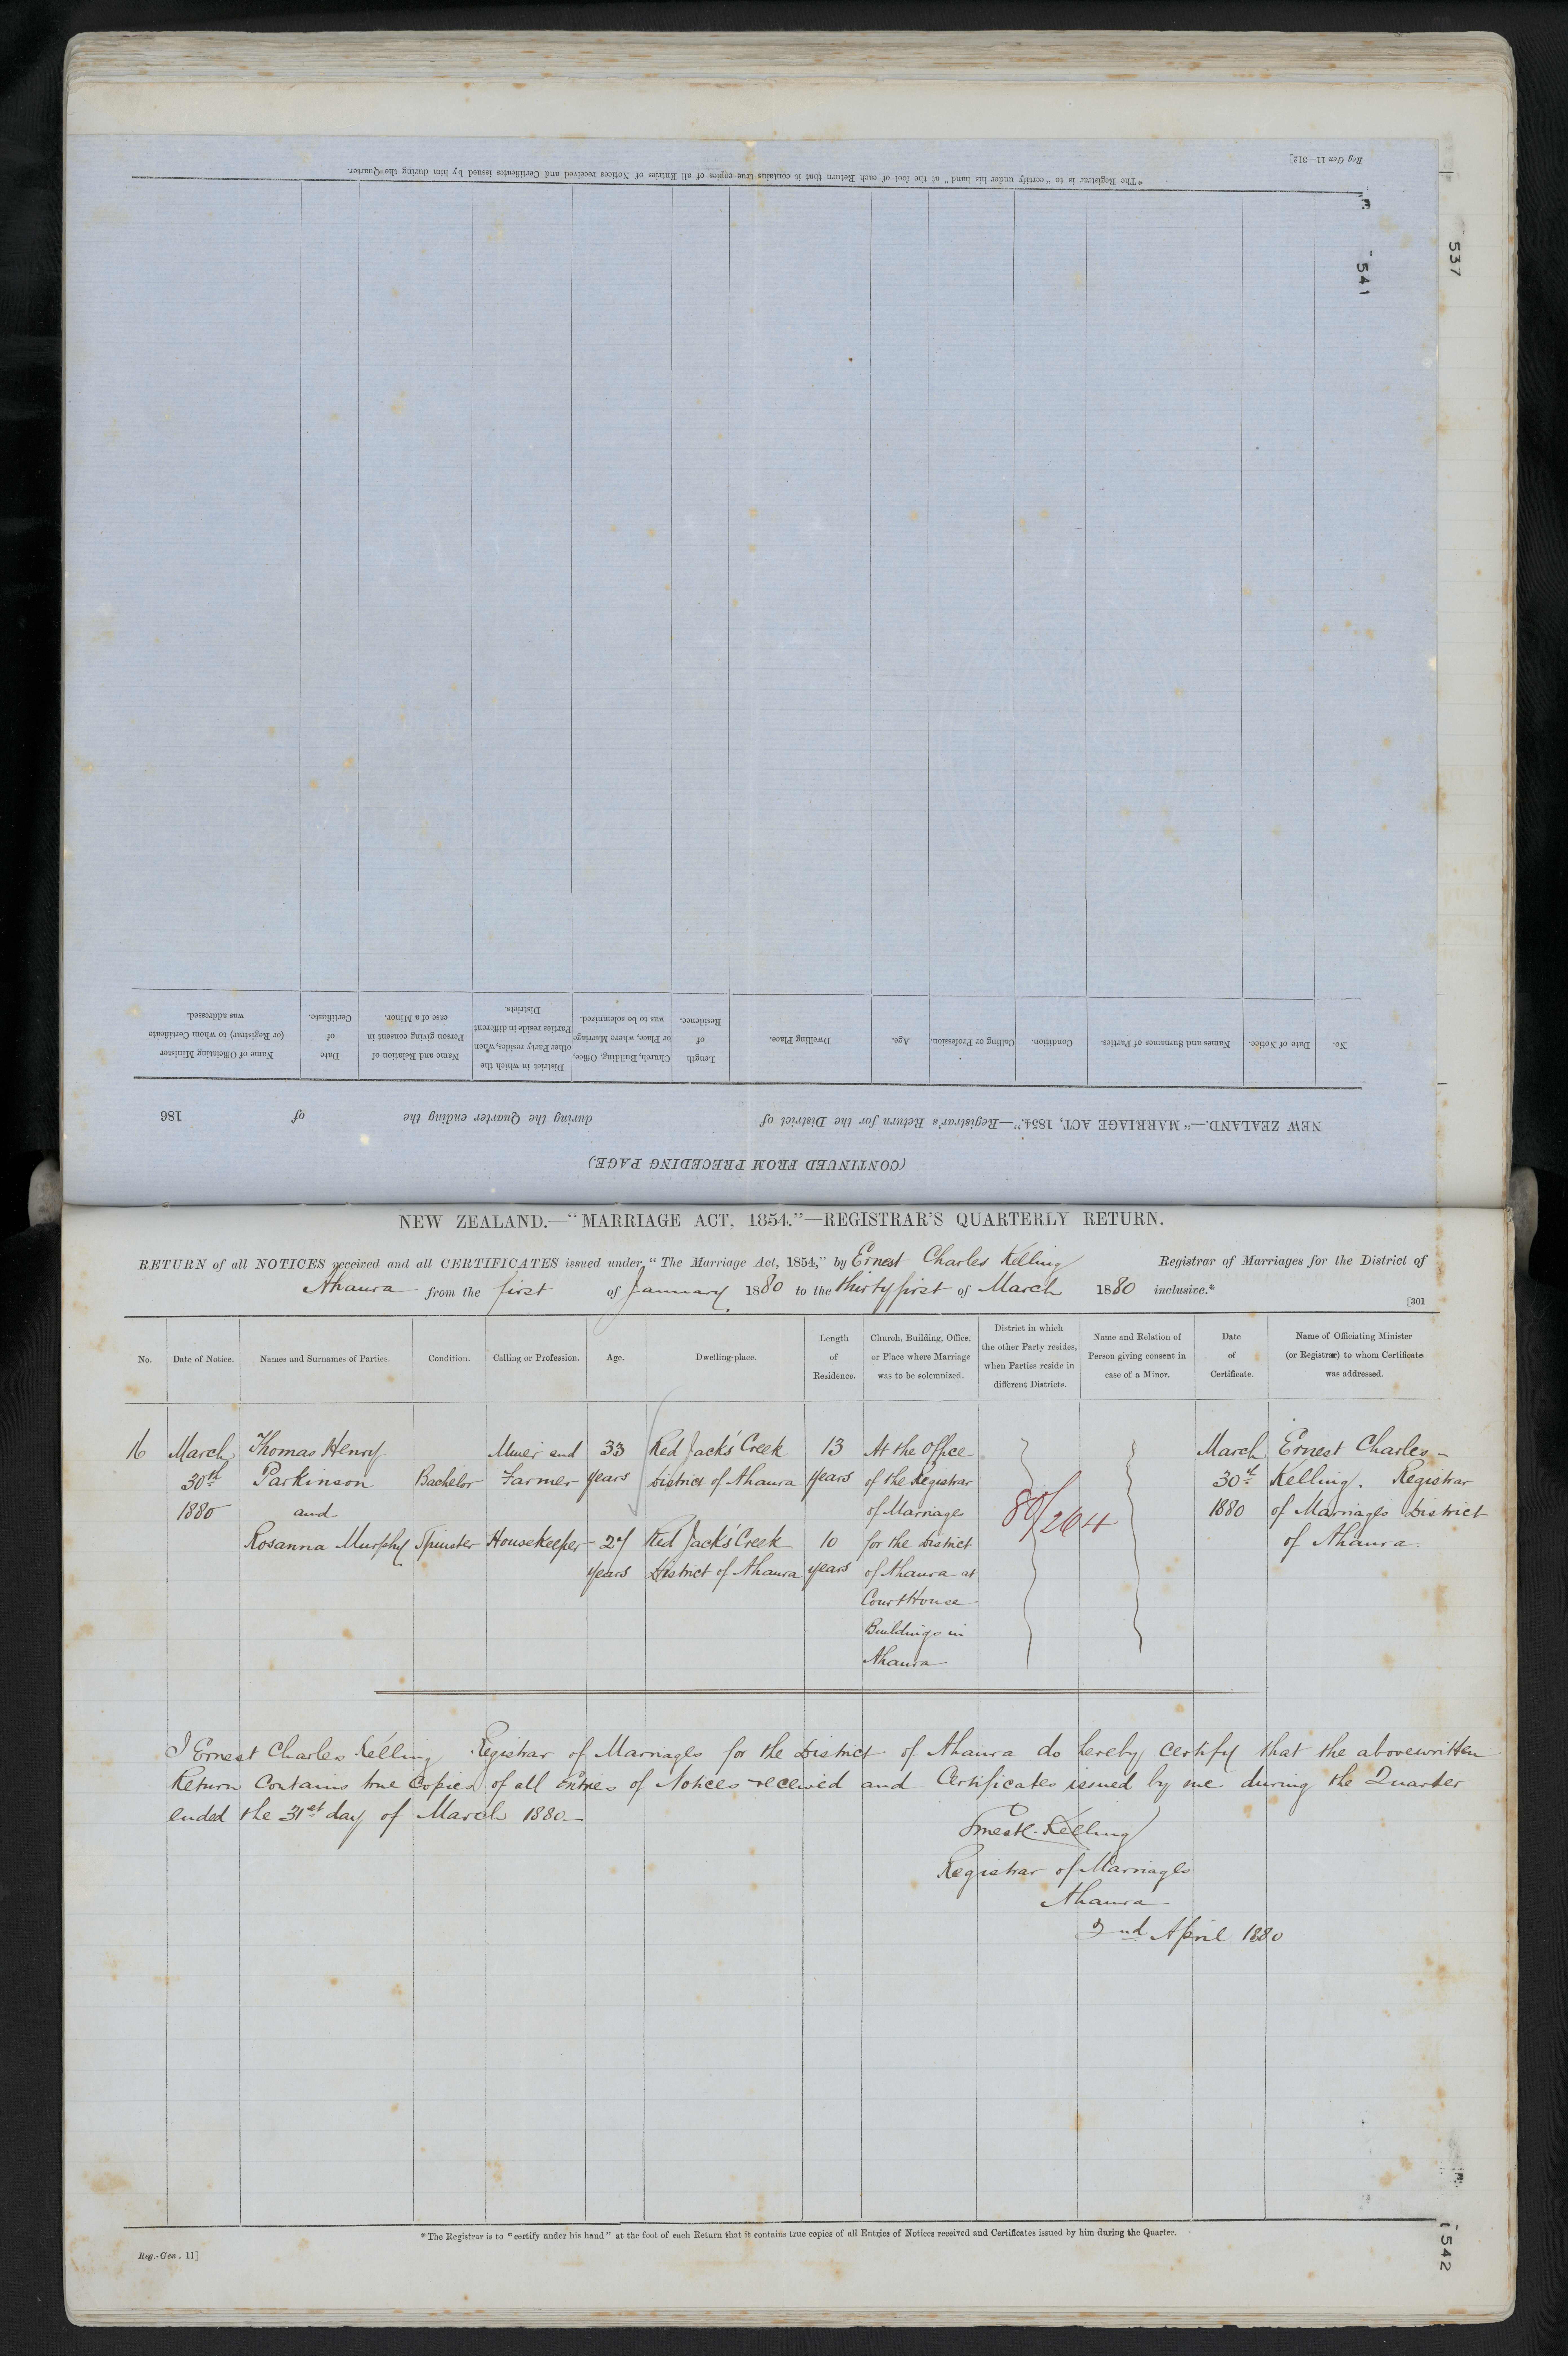 *The Registrar is to "certify under his hand" at the foot of each Return that it contains true copies of all Entries of Notices received and Certificates issued by him during the Quarter.
Reg Gen 11—312]
541
537
Name of Officiating Minister (or Registrar) to whom Certificate was addressed.
Date of Certificate.
Name and Relation of Person giving consent in case of a Minor.
District in which the other Party resides, when Parties reside in different Districts.
Church, Building, Office, or Place, where Marriage was to be solemnized.
Length of Residence.
Dwelling Place.
Age.
Calling or Profession.
Condition.
Names and Surnames of Parties.
Date of Notice.
No.
NEW ZEALAND.—"MARRIAGE ACT, 1854."—Registrar's Return for the District of during the Quarter ending the of 186
(CONTINUED FROM PRECEDING PAGE.)
NEW ZEALAND.—"MARRIAGE ACT, 1854."—REGISTRAR'S QUARTERLY RETURN.
RETURN of all NOTICES received and all CERTIFICATES issued under "The Marriage Act, 1854," by Ernest Charles Kelling Registrar of Marriages for the District of
Ahaura from the first of January 1880 to the thirty first of March 1880 inclusive.*
[301
No.
Date of Notice.
Names and Surnames of Parties.
Condition.
Calling or Profession.
Age.
Dwelling-place.
Length
of
Residence.
Church, Building, Office,
or Place where Marriage
was to be solemnized.
District in which
the other Party resides,
when Parties reside in
different Districts.
Name and Relation of
Person giving consent in
case of a Minor.
Date
of
Certificate.
Name of Officiating Minister
(or Registrar) to whom Certificate
was addressed.
16 March Thomas Henry Miner and 33 Red Jack's Creek 13 At the Office March Ernest Charles
30th Parkinson Bachelor Farmer years District of Ahaura years of the Registrar 30th Kelling. Registrar
1880 and of Marriages 80/264 1880 of Marriages District
Rosanna Murphy Spinster Housekeeper 27 Red Jack's Creek 10 for the District of Ahaura.
years District of Ahaura years of Ahaura at
Court House
Buildings in
Ahaura
I Ernest Charles Kelling Registrar of Marriages for the District of Ahaura do hereby certify that the abovewritten
Return Contains true Copies of all Entries of Notices received and Certificates issued by me during the Quarter
ended the 31st day of March 1880
Ernest C. Kelling
Registrar of Marriages
Ahaura
2nd April 1880
*The Registrar is to "certify under his hand" at the foot of each Return that it contains true copies of all Entries of Notices received and Certificates issued by him during the Quarter.
Reg.-Gen. 11]
542